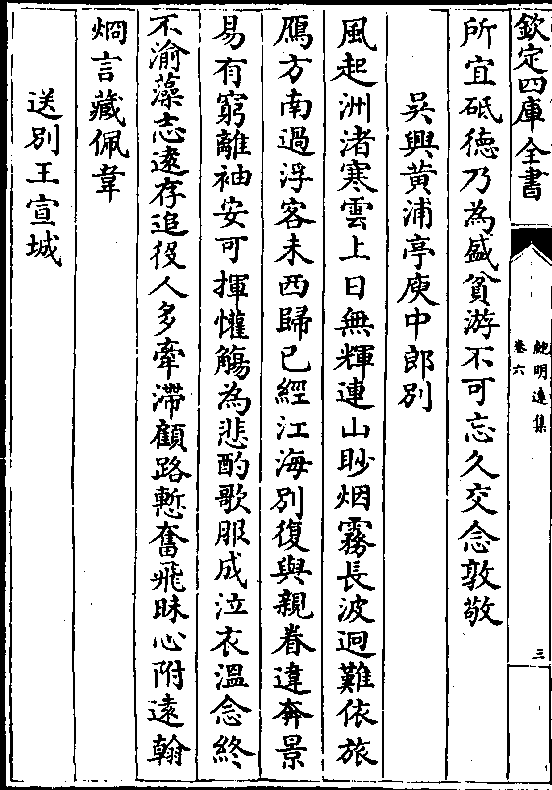 欽定四庫全書
鮑明遠集
卷六
三
所宜砥德乃為盛貧游不可忘久交念敦敬
吳興黃浦亭庾中郎別
風起洲渚寒雲上日無輝連山眇烟霧長波迥難依旅
鴈方南過浮客未西歸已經江海別復與親眷違奔景
易有窮離袖安可揮懽觴為悲酌歌服成泣衣溫念終
不渝藻志逺存追役人多牽滯顧路慙奮飛昧心附逺翰
烱言藏佩韋
送別王宣城